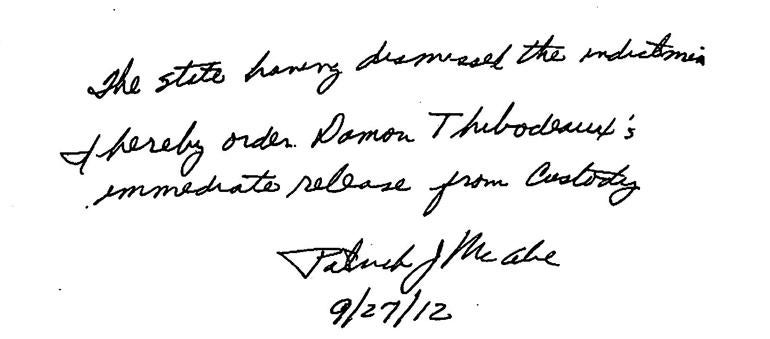 The state having dismissed the indictmen
I hereby order Damon Thibodeaux's
immediate release from Custody
Patrick J McCabe
9/27/12